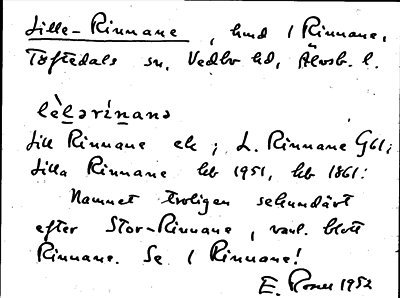 Lille-Rinnane, hmd 1 Rinnane,
Töftedals sn, Vedbo hd, Älvsb. l.
lèl̠ərínanə
Lill Rinnane ek; L. Rinnane Gbl;
Lilla Rinnane kb 1951, hb 1861.
Namnet troligen sekundärt
efter Stor-Rinnane, vanl. blott
Rinnane. Se 1 Rinnane!
E. Rosell 1952